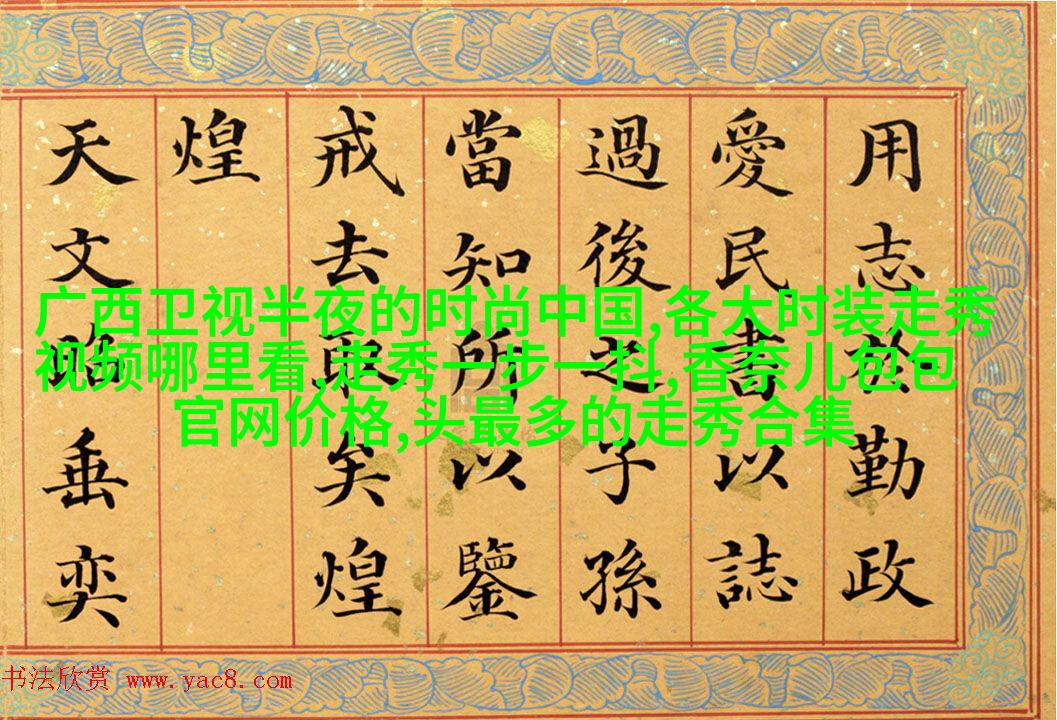 用志於勤政
愛民書以誌
過後之子孫
當知所以鑒
戒去取矣煌
煌
天文昭垂奕
广西卫视半夜的时尚中国,各大时装走秀
视频哪里看,走秀一步一抖,香奈儿包包
官网价格,头最多的走秀合集
书法欣赏 www.yac8.com